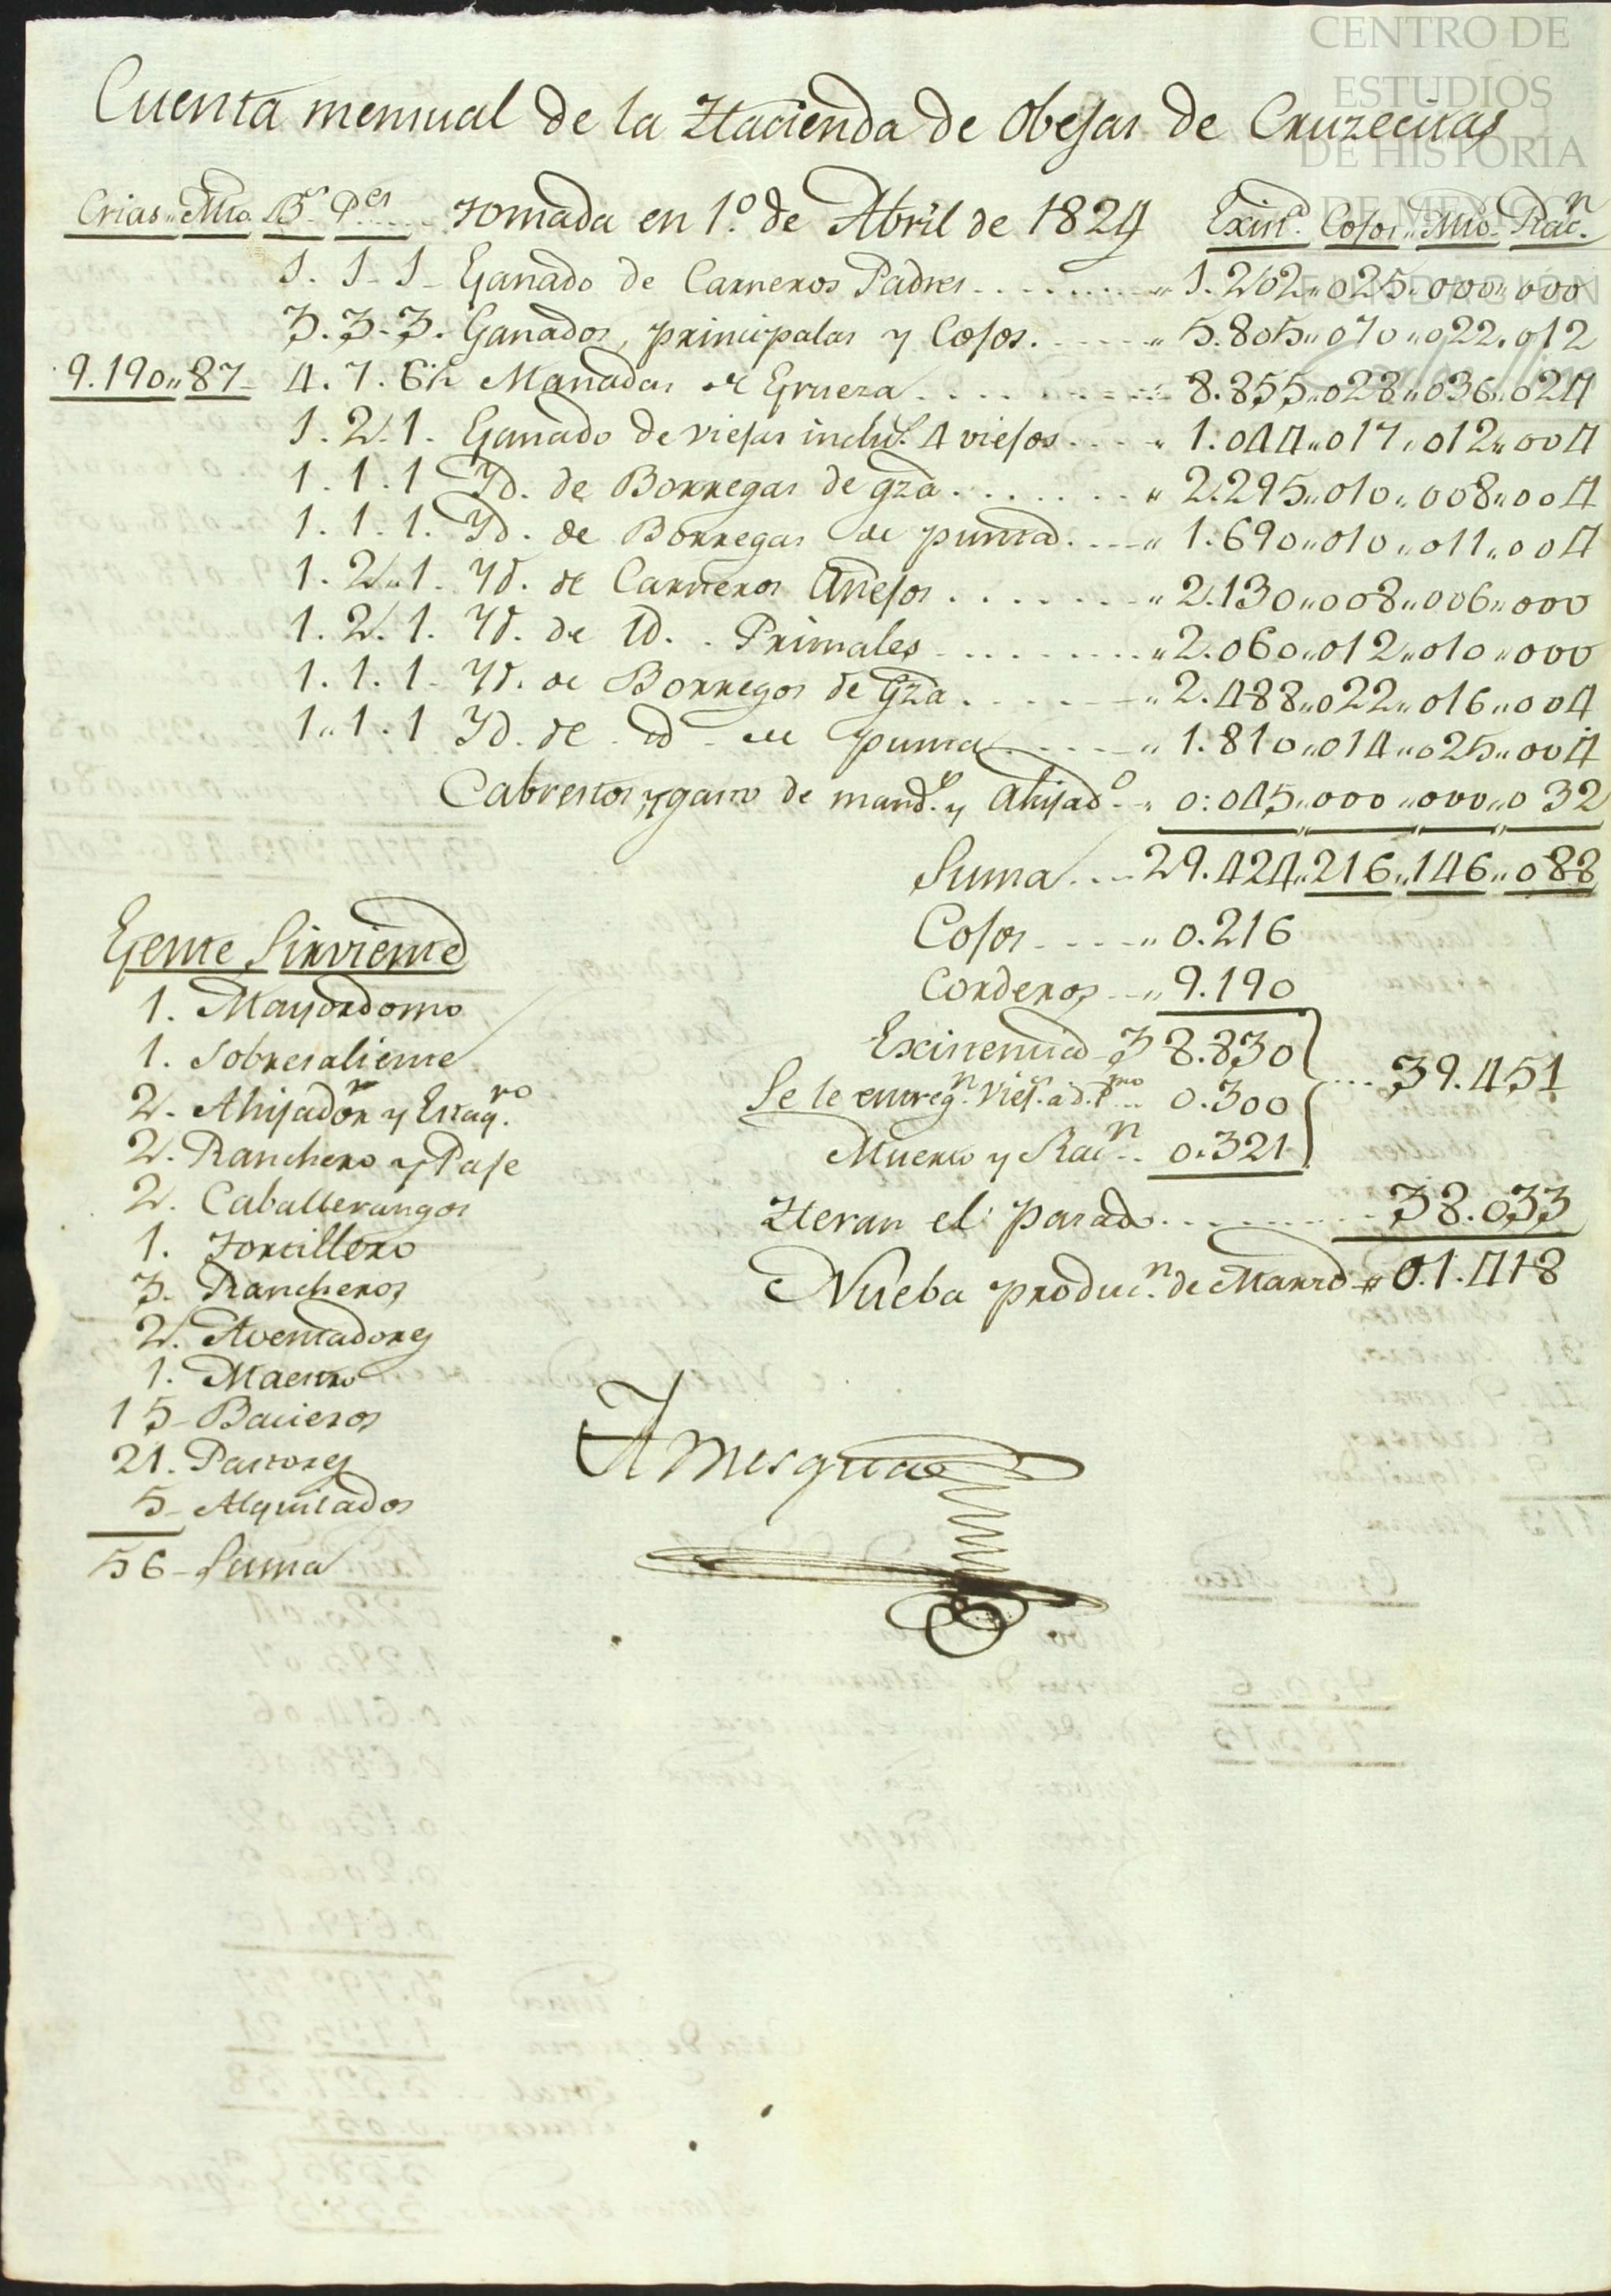 CENTRO DE
ESTUDIOS
DE HISTORIA
DE MEXICO
FUNDACIÓN
Cuenta mensual de la Hacienda de Obejas de Cruzecitas
Crias Mto. Bs. Pes. Tomada en 1.º de Abril de 1824 Exist.ª Cojos Mto. Rac.n
1. 1- 1- Ganado de Carneros Padres " 1.262 " 025 " 000 " 000
3. 3- 3. Ganados, principalas y Cojos. " 5.805 " 070 " 022 " 012
9.190 " 87 - 4. 7. 6½ Manadas de Grueza 8.855 " 028 " 036 " 024
1. 2. 1. Ganado de viejas inclus.e 4 viejos " 1.044 " 017 " 012 " 004
1. 1. 1 Yd. de Borregas de gza. " 2.295 " 010 " 008 " 004
1. 1. 1. Yd. de Borregas de punta. " 1.690 " 010 " 011 " 004
1. 2. 1. Yd. de Carneros Añejos " 2.130 " 008 " 006 " 000
1. 2. 1. Yd. de Id. Primales " 2.060 " 012 " 010 " 000
1. 1. 1- Yd. de Borregos de Gza. " 2.488 " 022 " 016 " 004
1. 1. 1 Yd. de id de punta " 1.810 " 014 " 025 " 004
Cabrestos y gasto de y Ahijad.o " 0.045 " 000 " 000 " 032
Suma 29.424 " 216 " 146 " 088
Cojos " 0.216
Corderos " 9.190
Existencia 38.830
Se le entreg.n Viej.s a d. 0.300
39.451
Muerto y Rac.n 0.321
Heran el pasado 38.033
Nueba produc.n de Marzo " 0.1.418
Gente Sirviente
1. Mayordomo
1. Sobresaliente
2. Ahijador y Estaq.ro
2. Ranchero y Paje
2. Caballerangos
1. Tortillero
3. Rancheros
2. Aventadores
1. Maestro
15- Bacieros
21. Pastores
5- Alquilados
56- Suma
Amesquita